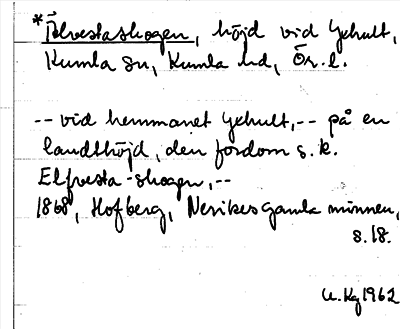 *Älvestaskogen, höjd vid Gehult,
Kumla sn, Kumla hd, Ör. l.
-- vid hemmanet Gehult, -- på en
landthöjd, den fordom s. k.
Elfvesta-skogen, --
1868, Hofberg, Nerikes gamla minnen,
s. 18.
1962